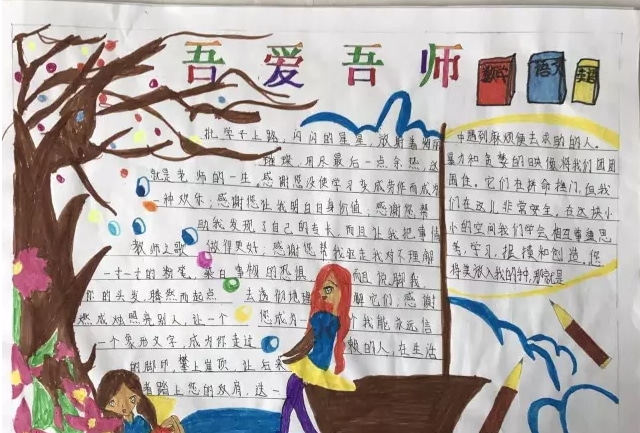 吾爱吾师
数学 语文 英语
批学子上路,闪闪的星星,放射着绚丽
璀璨,用尽最后一点余热,这
就是老师的一生。感谢您没使学习变成劳作而成为
一种欢乐;感谢您让我明白自身价值;感谢您帮
助我发现了自己的专长,而且让我把事情
教师之歌 做得更好;感谢您帮我驱走我对不理解
一寸一寸的 事物的恐惧 而且说服我
你的头发,腾然而起点 去透彻地理 解它们;感谢
燃成烛照亮别人,让一个 您成为一 个我能永远信
一个象形文字,成为你走过 赖的人,在生活
的脚印 攀上崖顶,让后来
者踏上您的双肩,送一
中遇到麻烦便去求助的人。
暴力和贫婪的时候将我们团团
围住。它们在拼命撞门,但我
们在这儿非常安全,在这块小
小的空间我们学会相互尊重思
考,学习,摸摸和创造,您
将美放入我的钟,那就是